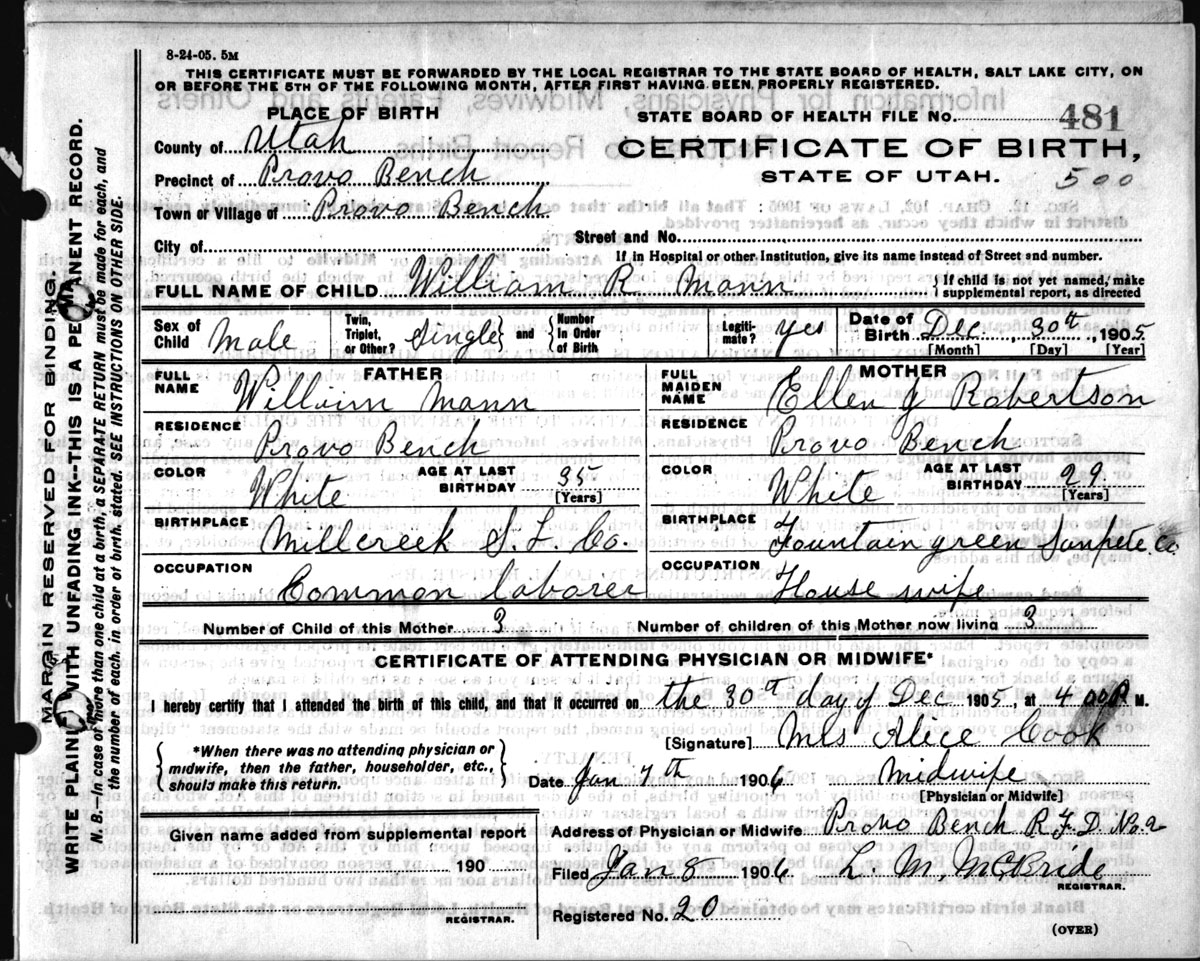 8-24-05. 5M
THIS CERTIFICATE MUST BE FORWARDED BY THE LOCAL REGISTRAR TO THE STATE BOARD OF HEALTH, SALT LAKE CITY, ON
OR BEFORE THE 5TH OF THE FOLLOWING MONTH, AFTER FIRST HAVING BEEN PROPERLY REGISTERED.
PLACE OF BIRTH
STATE BOARD OF HEALTH FILE No. 481
County of Utah
CERTIFICATE OF BIRTH,
Precinct of Provo Bench
STATE OF UTAH. 500
Town or Village of Provo Bench
City of
Street and No.
If in Hospital or other Institution, give its name instead of Street and number.
FULL NAME OF CHILD William R Mann { If child is not yet named, make
supplemental report, as directed
Sex of
Child Male
Twin,
Triplet,
or Other? Single } and { Number
In Order
of Birth
Legiti-
mate? yes
Date of
Birth Dec, 30th, 1905
[Month] [Day] [Year]
FATHER
FULL
NAME William Mann
RESIDENCE
Provo Bench
COLOR
White
AGE AT LAST
BIRTHDAY 35
[Years]
BIRTHPLACE
Millcreek S. L. Co.
OCCUPATION
Common laborer
MOTHER
FULL
MAIDEN
NAME Ellen J Robertson
RESIDENCE
Provo Bench
COLOR
White
AGE AT LAST
BIRTHDAY 29.
[Years]
BIRTHPLACE
Fountain green Sanpete. Co
OCCUPATION
House wife
Number of Child of this Mother 3
Number of children of this Mother now living 3
CERTIFICATE OF ATTENDING PHYSICIAN OR MIDWIFE*
I hereby certify that I attended the birth of this child, and that it occurred on the 30th day of Dec 1905, at 4 00 M.
{ *When there was no attending physician or
midwife, then the father, householder, etc.,
should make this return. }
[Signature] Mrs Alice Cook
Date Jan 7th 1906 Midwife
[Physician or Midwife]
Given name added from supplemental report
190
REGISTRAR.
Address of Physician or Midwife Provo Bench R. F. D. No. 2
Filed Jan 8 1906 L. M. McBride
REGISTRAR.
Registered No. 20
(OVER)
MARGIN RESERVED FOR BINDING.
WRITE PLAINLY WITH UNFADING INK--THIS IS A PERMANENT RECORD.
N. B.--In case of more than one child at a birth, a SEPARATE RETURN must be made for each, and
the number of each, in order of birth, stated. SEE INSTRUCTIONS ON OTHER SIDE.